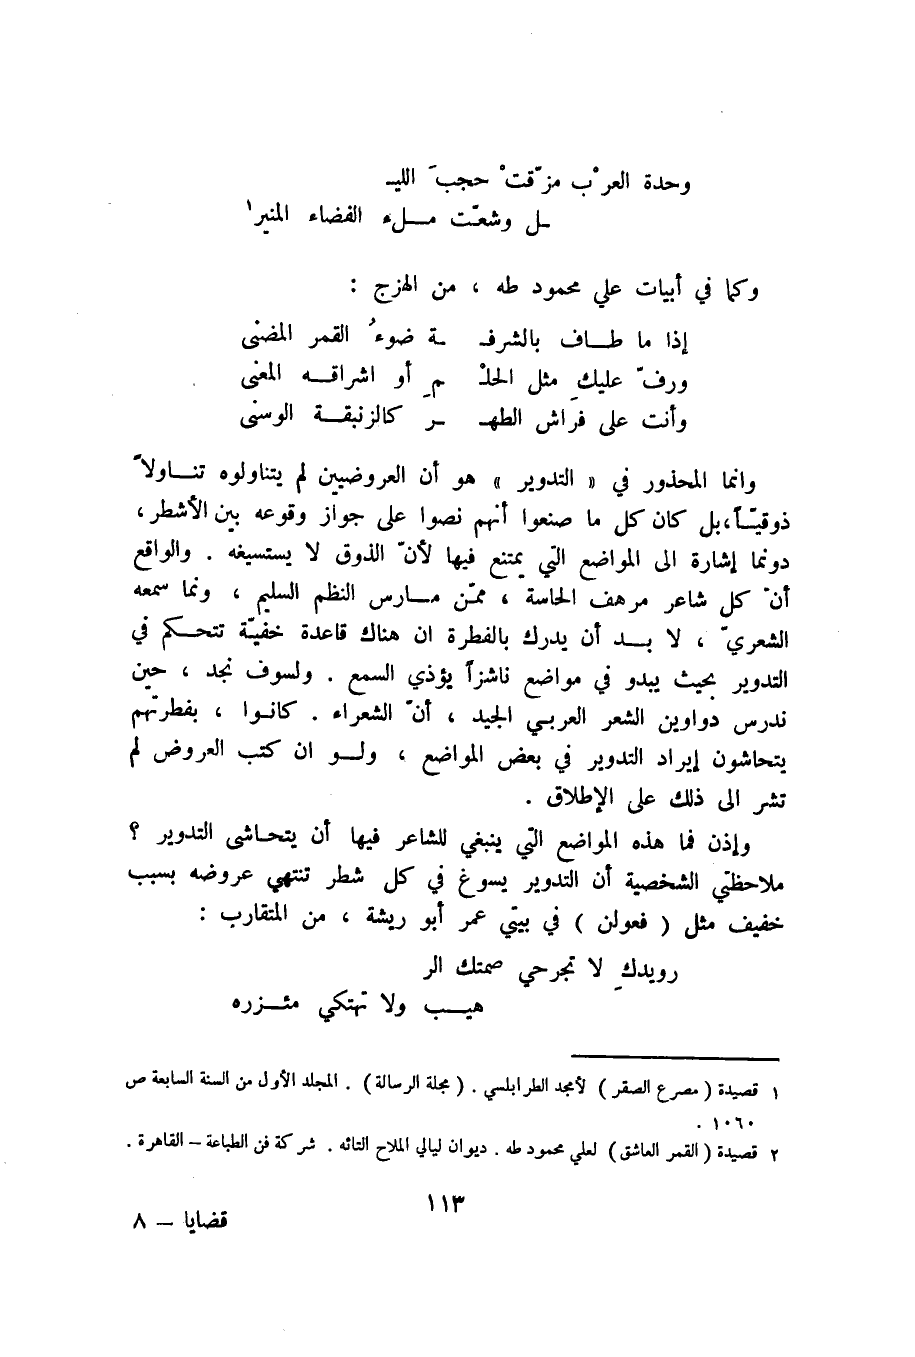 وحدة العرْب مزّقتْ حجبَ الليـ
ـل وشعّت مــلء الفضاء المنير١
وكما في أبيات علي محمود طه ، من الهزج :
إذا ما طــاف بالشرفـ ـة ضوءُ القمر المضنى
ورفّ عليكِ مثل الحلْـ ـمِ أو اشراقــه المعنى
وأنت على فراش الطهـ ـر كالزنبقــة الوسنى
وانما المحذور في « التدوير » هو أن العروضيين لم يتناولوه تنــاولاً
ذوقيّــاً ، بل كان كل ما صنعوا أنهم نصوا على جواز وقوعه بين الأشطر ،
دونما إشارة الى المواضع التي يمتنع فيها لأنّ الذوق لا يستسيغه . والواقع
أنّ كل شاعر مرهف الحاسة ، ممّن مــارس النظم السليم ، ونما سمعه
الشعريّ ، لا بــد أن يدرك بالفطرة ان هناك قاعدة خفيّة تتحكم في
التدوير بحيث يبدو في مواضع ناشزاً يؤذي السمع . ولسوف نجد ، حين
ندرس دواوين الشعر العربي الجيد ، أنّ الشعراء . كانـوا ، بفطرتهم
يتحاشون إيراد التدوير في بعض المواضع ، ولــو ان كتب العروض لم
تشر الى ذلك على الإطلاق .
وإذن فما هذه المواضع التي ينبغي للشاعر فيها أن يتحاشى التدوير ؟
ملاحظتي الشخصية أن التدوير يسوغ في كل شطر تنتهي عروضه بسبب
خفيف مثل ( فعولن ) في بيتي عمر أبو ريشة ، من المتقارب :
رويدكِ لا تجرحي صمتك الر
هيــب ولا تهتكي مئــزره
١ قصيدة ( مصرع الصقر ) لأمجد الطرابلسي . ( مجلة الرسالة ) . المجلد الأول من السنة السابعة ص
١٠٦٠ .
٢ قصيدة ( القمر العاشق ) لعلي محمود طه . ديوان ليالي الملاح التائه . شركة فن الطباعة – القاهرة .
١١٣
قضايا – ٨